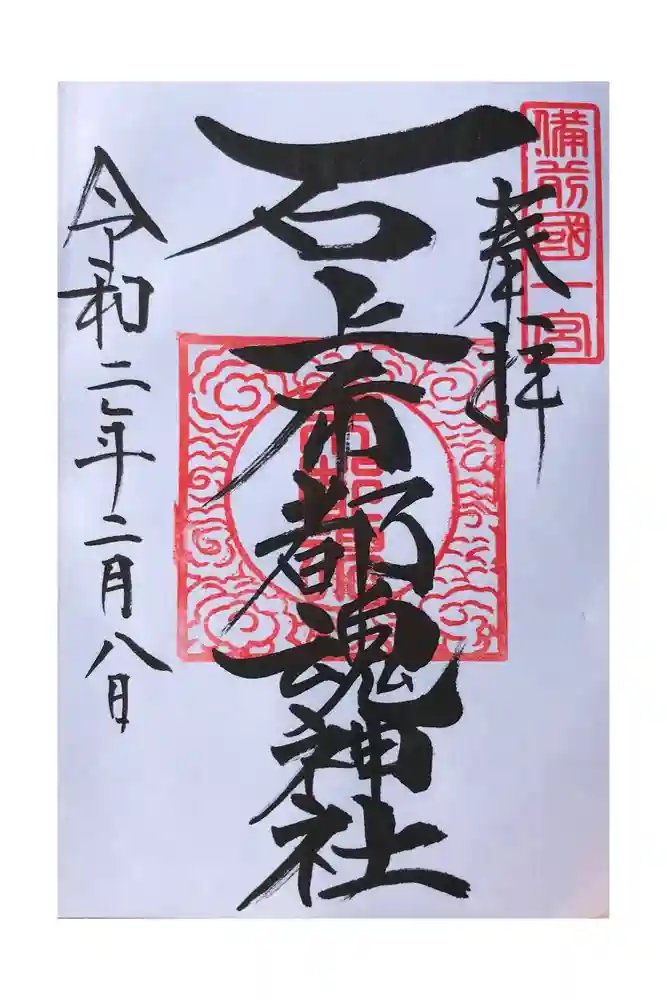 備前國一宮
奉拝
石上布都魂神社
令和二年二月八日